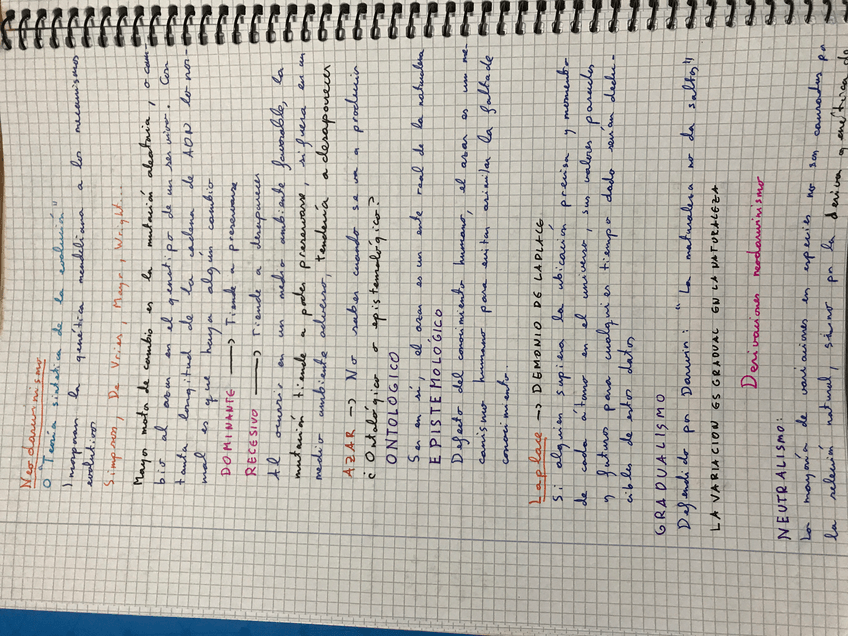 Neodarwinismo
O "Teoría sintética de la evolución"
Incorporan la genética mendeliana a los mecanismos
evolutivos
Simpson, De Vries, Mayr, Wright...
Mayor motor de cambio es la mutación aleatoria, o cam-
bio al azar en el genotipo de un ser vivo. Con
tanta longitud de la cadena de ADN lo nor-
mal es que haya algún cambio
DOMINANTE → Tiende a preservarse
RECESIVO → Tiende a desaparecer
Al ocurrir en un medio ambiente favorable, la
mutación tiende a poder preservarse, si fuera en un
medio ambiente adverso, tendería a desaparecer
AZAR → No saber cuando se va a producir
¿Ontológico o epistemológico?
ONTOLÓGICO
Ser en sí, el azar es un ente real de la naturaleza
EPISTEMOLÓGICO
Defecto del conocimiento humano, el azar es un me-
canismo humano para evitar asimilar la falta de
conocimiento.
Laplace → DEMONIO DE LAPLACE
Si alguien supiera la ubicación precisa y momento
de cada átomo en el universo, sus valores pasados
y futuros para cualquier tiempo dado serían dedu-
cibles de estos datos
GRADUALISMO
Defendido por Darwin: "La naturaleza no da saltos"
LA VARIACION ES GRADUAL EN LA NATURALEZA
Derivaciones neodarwinismo
NEUTRALISMO:
La mayoría de variaciones en especies no son causadas por
la selección natural, sino por la deriva genética de